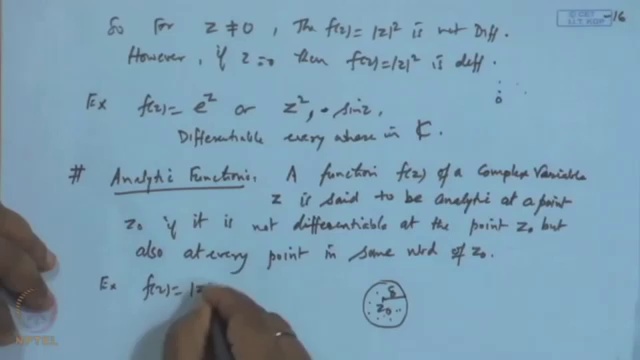 So For z ≠ 0, The f(z) = |z|² is not Diff.
However, if z = 0 then f(z) = |z|² is diff.
Ex f(z) = e^z or z², sinz,
Differentiable every where in ₵.
# Analytic Function: A function f(z) of a Complex Variable
z is said to be analytic at a point
z₀ if it is not differentiable at the point z₀ but
also at every point in some nbd of z₀.
Ex f(z) = |z
δ
z₀
0
© CET
I.I.T. KGP
-16
NPTEL